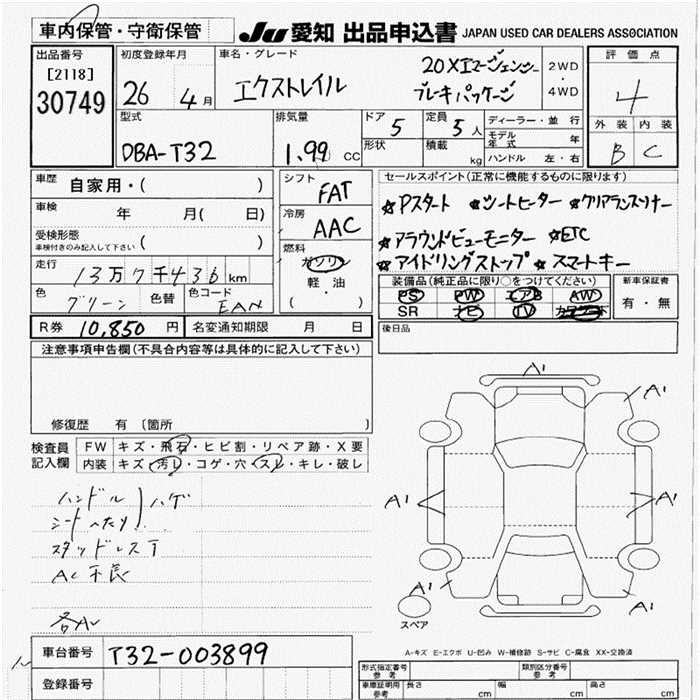 車内保管・守衛保管
JU 愛知 出品申込書 JAPAN USED CAR DEALERS ASSOCIATION
出品番号
[2118]
30749
初度登録年月
26年 4月
車名・グレード
エクストレイル
20Xエマージェンシー
ブレーキパッケージ
2WD
・
4WD
評価点
4
外装 内装
B C
型式
DBA-T32
排気量
1.99 CC
ドア 5
形状
定員 5人
積載 kg
ディーラー・並行
モデル年式 年
ハンドル 左・右
車歴 自家用・( )
車検 年 月( 日)
受検形態
車検付きのみ記入して下さい ( )
走行 13万7千436km
色 グリーン 色替 色コード EAN
シフト FAT
冷房 AAC
燃料
ガソリン
軽油
( ・ )
セールスポイント(正常に機能するものに限ります)
☆Pスタート ☆シートヒーター ☆クリアランスソナー
☆アラウンドビューモニター ☆ETC
☆アイドリングストップ ☆スマートキー
装備品(純正品に限り○をつけてください)
PS PW エアB AW
SR ナビ TV
新車保証書
有・無
後日品
R券 10,850円 名変通知期限 月 日
注意事項申告欄(不具合内容等は具体的に記入して下さい)
修復歴 有 〔箇所 〕
検査員記入欄
FW キズ・飛石・ヒビ割・リペア跡・X要
内装 キズ・汚レ・コゲ・穴・スレ・キレ・破レ
ハンドル
シートへたり
ハゲ
スタッドレスT
AC不良
各A1
A1
A1
A1
A1
A1
A1
スペア
A-キズ E-エクボ U-凹み W-補修跡 S-サビ C-腐食 XX-交換済
車台番号 T32-003899
登録番号
形式指定番号 参考
類別区分番号 参考
車庫証明用 参考 長さ cm 幅 cm 高さ cm